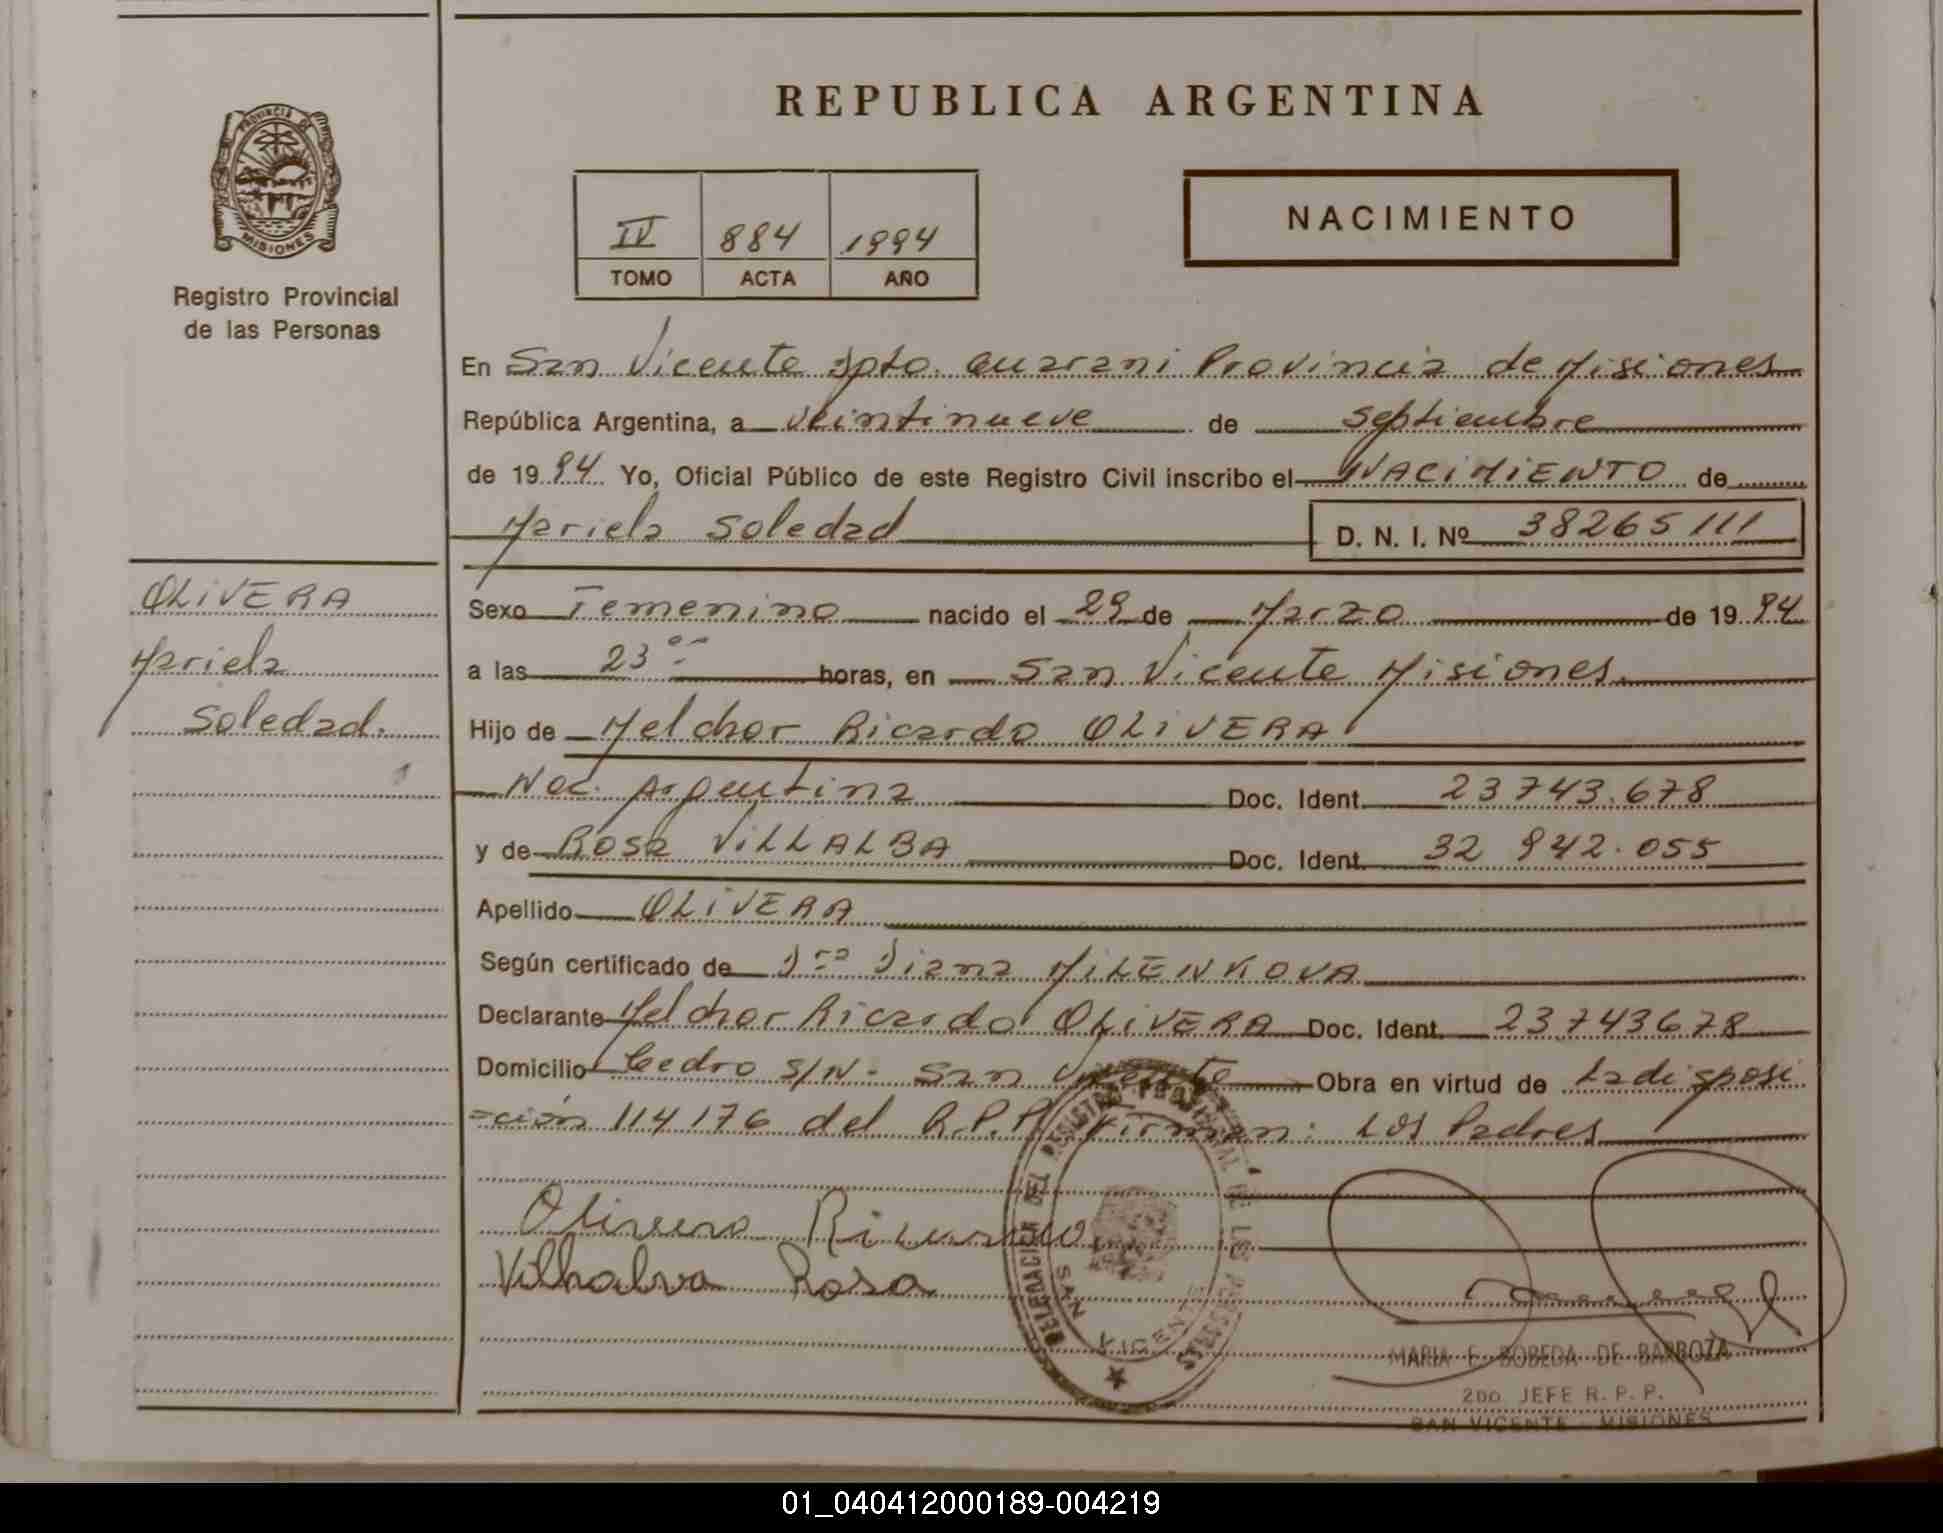 REPUBLICA ARGENTINA
PROVINCIA DE
MISIONES
Registro Provincial
de las Personas
IV 884 1994
TOMO ACTA AÑO
NACIMIENTO
En San Vicente Dpto. Guarani Provincia de Misiones
República Argentina, a veintinueve de septiembre
de 1994 Yo, Oficial Público de este Registro Civil inscribo el NACIMIENTO de
Mariela Soledad D. N. I. Nº 38265111
OLIVERA
Mariela
Soledad.
Sexo Femenino nacido el 29 de Marzo de 1994
a las 23 00 horas, en San Vicente Misiones.
Hijo de Melchor Ricardo OLIVERA
Nac. Argentina Doc. Ident. 23743.678
y de Rosa VILLALBA Doc. Ident. 32 942.055
Apellido OLIVERA
Según certificado de Dra Diana MILENKOVA
Declarante Melchor Ricardo OLIVERA Doc. Ident. 23743678
Domicilio Cedro S/N- San Vicente Obra en virtud de La disposi
=ción 114176 del R.P.P. Firman: Los Padres
Ricardo
Villhalva Rosa
DELEGACION DEL REGISTRO PROVINCIAL DE LAS PERSONAS
SAN VICENTE
MARIA E. BOBEDA DE BARBOZA
2DO JEFE R. P. P.
SAN VICENTE - MISIONES
01_040412000189-004219